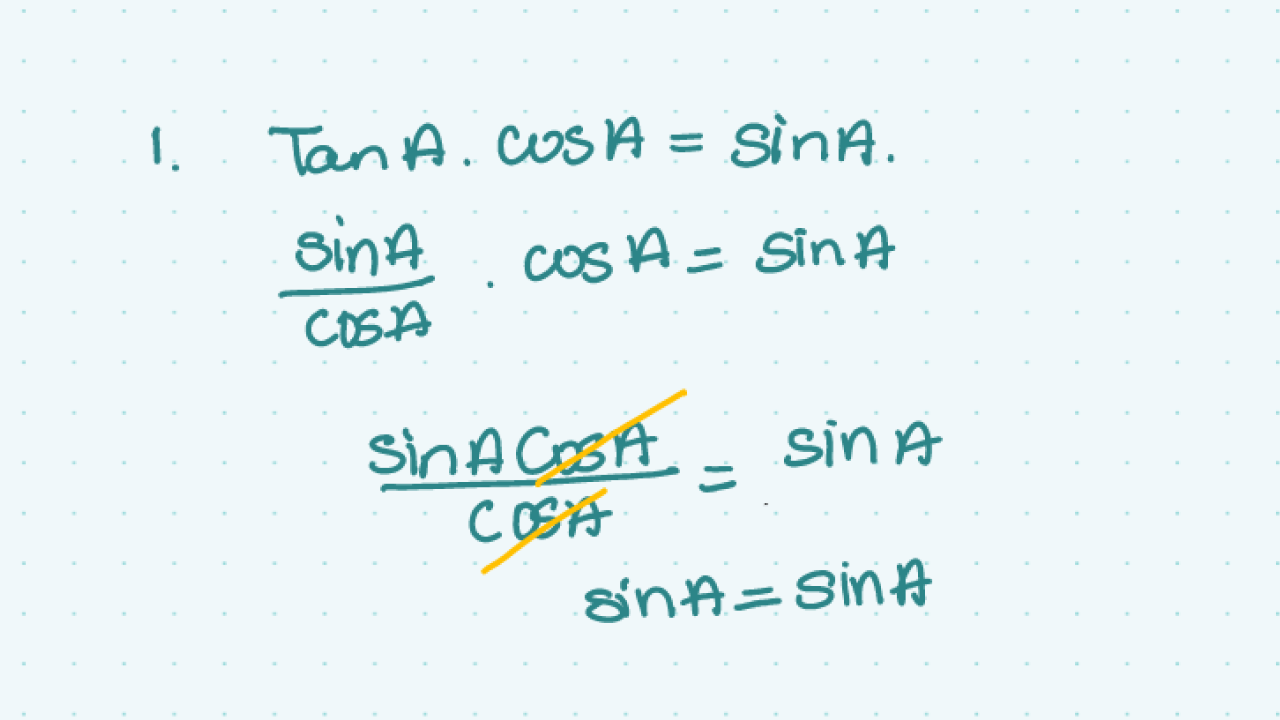 1. Tan A . cos A = sin A.
sin A
cos A
. cos A = sin A
sin A Cos A
Cos A
= sin A
sin A = sin A